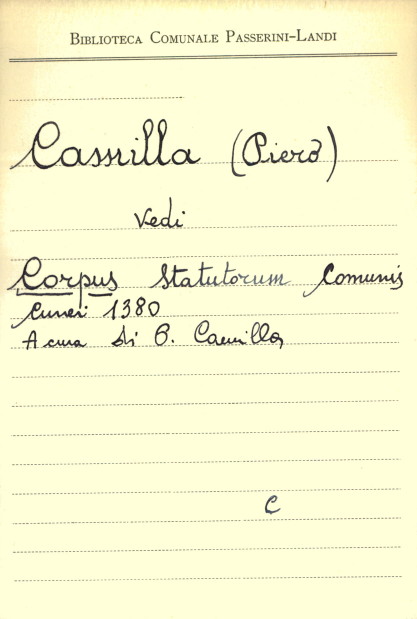 BIBLIOTECA COMUNALE PASSERINI-LANDI
Camilla (Piero)
Vedi
Corpus Statutorum Comunis
Cunei 1380
A cura di P. Camilla
C